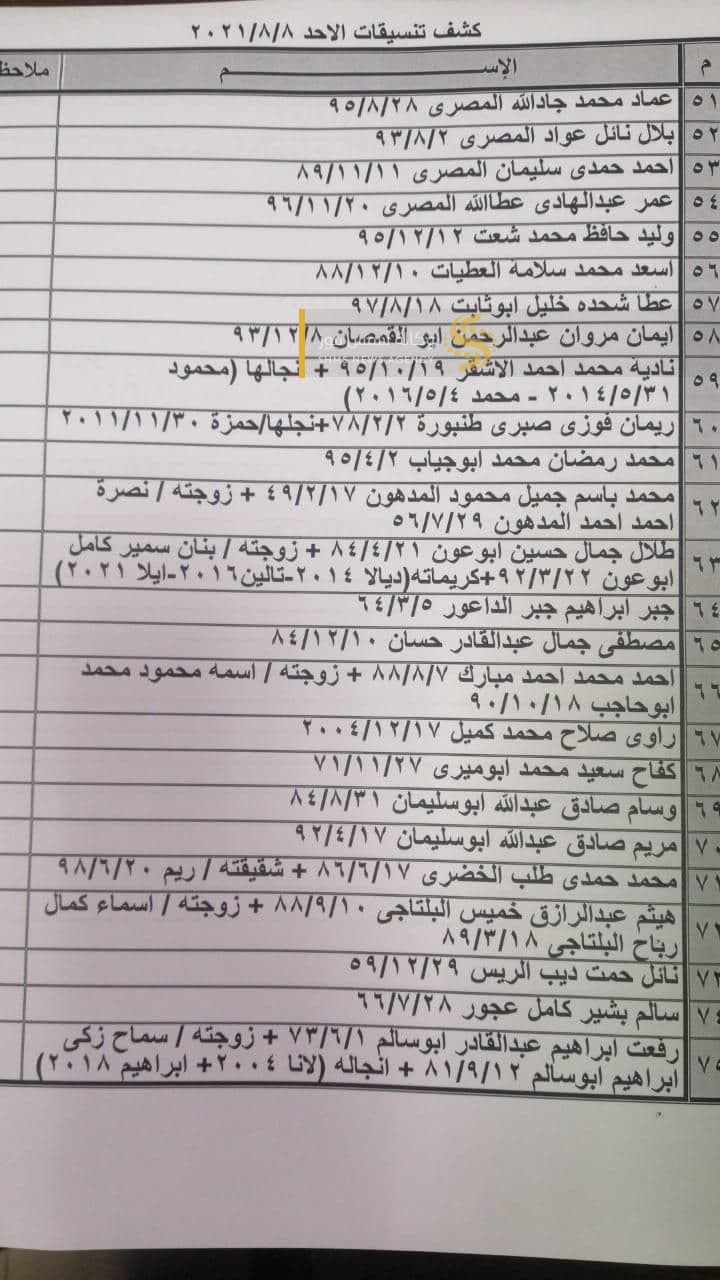 كشف تنسيقات الاحد ٢٠٢١/٨/٨
م الإســـــــــم ملاحظ
٥١ عماد محمد جادالله المصرى ٩٥/٨/٢٨
٥٢ بلال نائل عواد المصرى ٩٣/٨/٢
٥٣ احمد حمدى سليمان المصرى ٨٩/١١/١١
٥٤ عمر عبدالهادى عطاالله المصرى ٩٦/١١/٢٠
٥٥ وليد حافظ محمد شعت ٩٥/١٢/١٢
٥٦ اسعد محمد سلامة العطيات ٨٨/١٢/١٠
٥٧ عطا شحده خليل ابوثابت ٩٧/٨/١٨
٥٨ ايمان مروان عبدالرحمن ابو القمصان ٩٣/١٢/٨
SHMS NEWS AGENCY
٥٩ نادية محمد احمد الاشقر ٩٥/١٠/١٩ + انجالها (محمود
٢٠١٤/٥/٣١ - محمد ٢٠١٦/٥/٤)
٦٠ ريمان فوزى صبرى طنبورة ٧٨/٢/٢+نجلها/حمزة ٢٠١١/١١/٣٠
٦١ محمد رمضان محمد ابوجياب ٩٥/٤/٢
٦٢ محمد باسم جميل محمود المدهون ٤٩/٢/١٧ + زوجته / نصرة
احمد احمد المدهون ٥٦/٧/٢٩
٦٣ طلال جمال حسين ابوعون ٨٤/٤/٢١ + زوجته / بنان سمير كامل
ابوعون ٩٢/٣/٢٢+كريماته(ديالا ٢٠١٤-تالين٢٠١٦-ايلا ٢٠٢١)
٦٤ جبر ابراهيم جبر الداعور ٦٤/٣/٥
٦٥ مصطفى جمال عبدالقادر حسان ٨٤/١٢/١٠
٦٦ احمد محمد احمد مبارك ٨٨/٨/٧ + زوجته / اسمه محمود محمد
ابوحاجب ٩٠/١٠/١٨
٦٧ راوى صلاح محمد كميل ٢٠٠٤/١٢/١٧
٦٨ كفاح سعيد محمد ابوميرى ٧١/١١/٢٧
٦٩ وسام صادق عبدالله ابوسليمان ٨٤/٨/٣١
٧٠ مريم صادق عبدالله ابوسليمان ٩٢/٤/١٧
٧١ محمد حمدى طلب الخضرى ٨٦/٦/١٧ + شقيقته / ريم ٩٨/٦/٢٠
٧٢ هيثم عبدالرازق خميس البلتاجى ٨٨/٩/١٠ + زوجته / اسماء كمال
رباح البلتاجى ٨٩/٣/١٨
٧٣ نائل حمت ديب الريس ٥٩/١٢/٢٩
٧٤ سالم بشير كامل عجور ٦٦/٧/٢٨
٧٥ رفعت ابراهيم عبدالقادر ابوسالم ٧٣/٦/١ + زوجته / سماح زكى
ابراهيم ابوسالم ٨١/٩/١٢ + انجاله (لانا ٢٠٠٤+ ابراهيم ٢٠١٨)